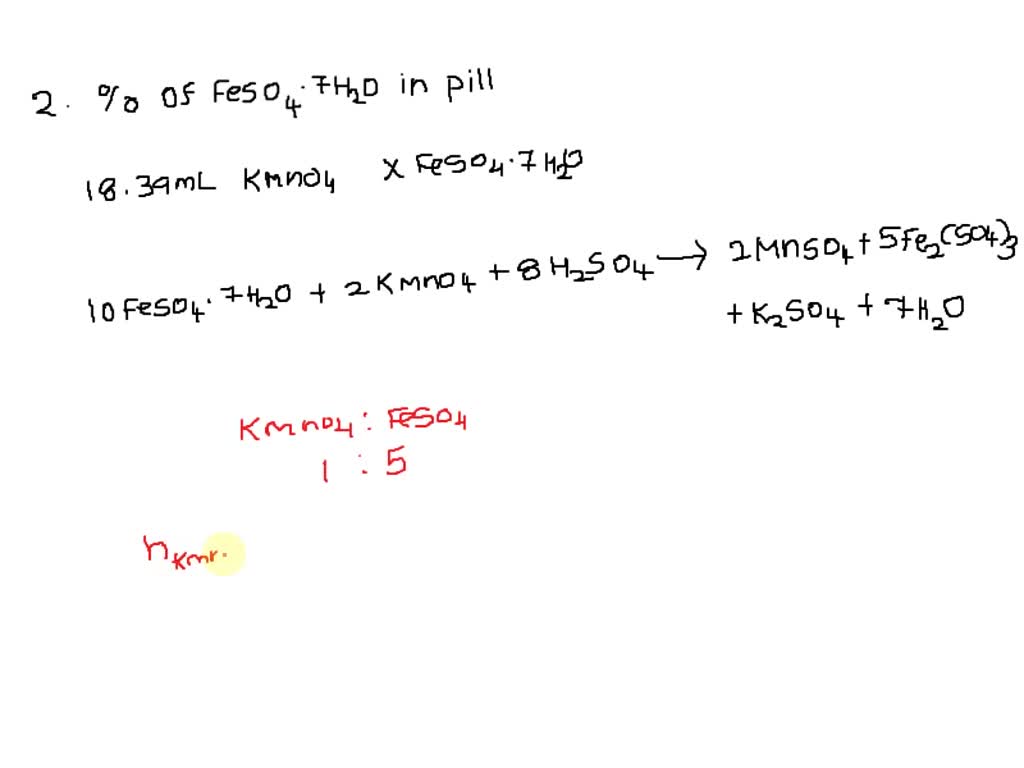 2. % of FeSO4·7H2O in pill
18.39mL KMnO4 x FeSO4·7H2O
10FeSO4·7H2O + 2KMnO4 + 8H2SO4 → 2MnSO4 + 5Fe2(SO4)3
+ K2SO4 + 7H2O
KMnO4 : FeSO4
1 : 5
nKMr.